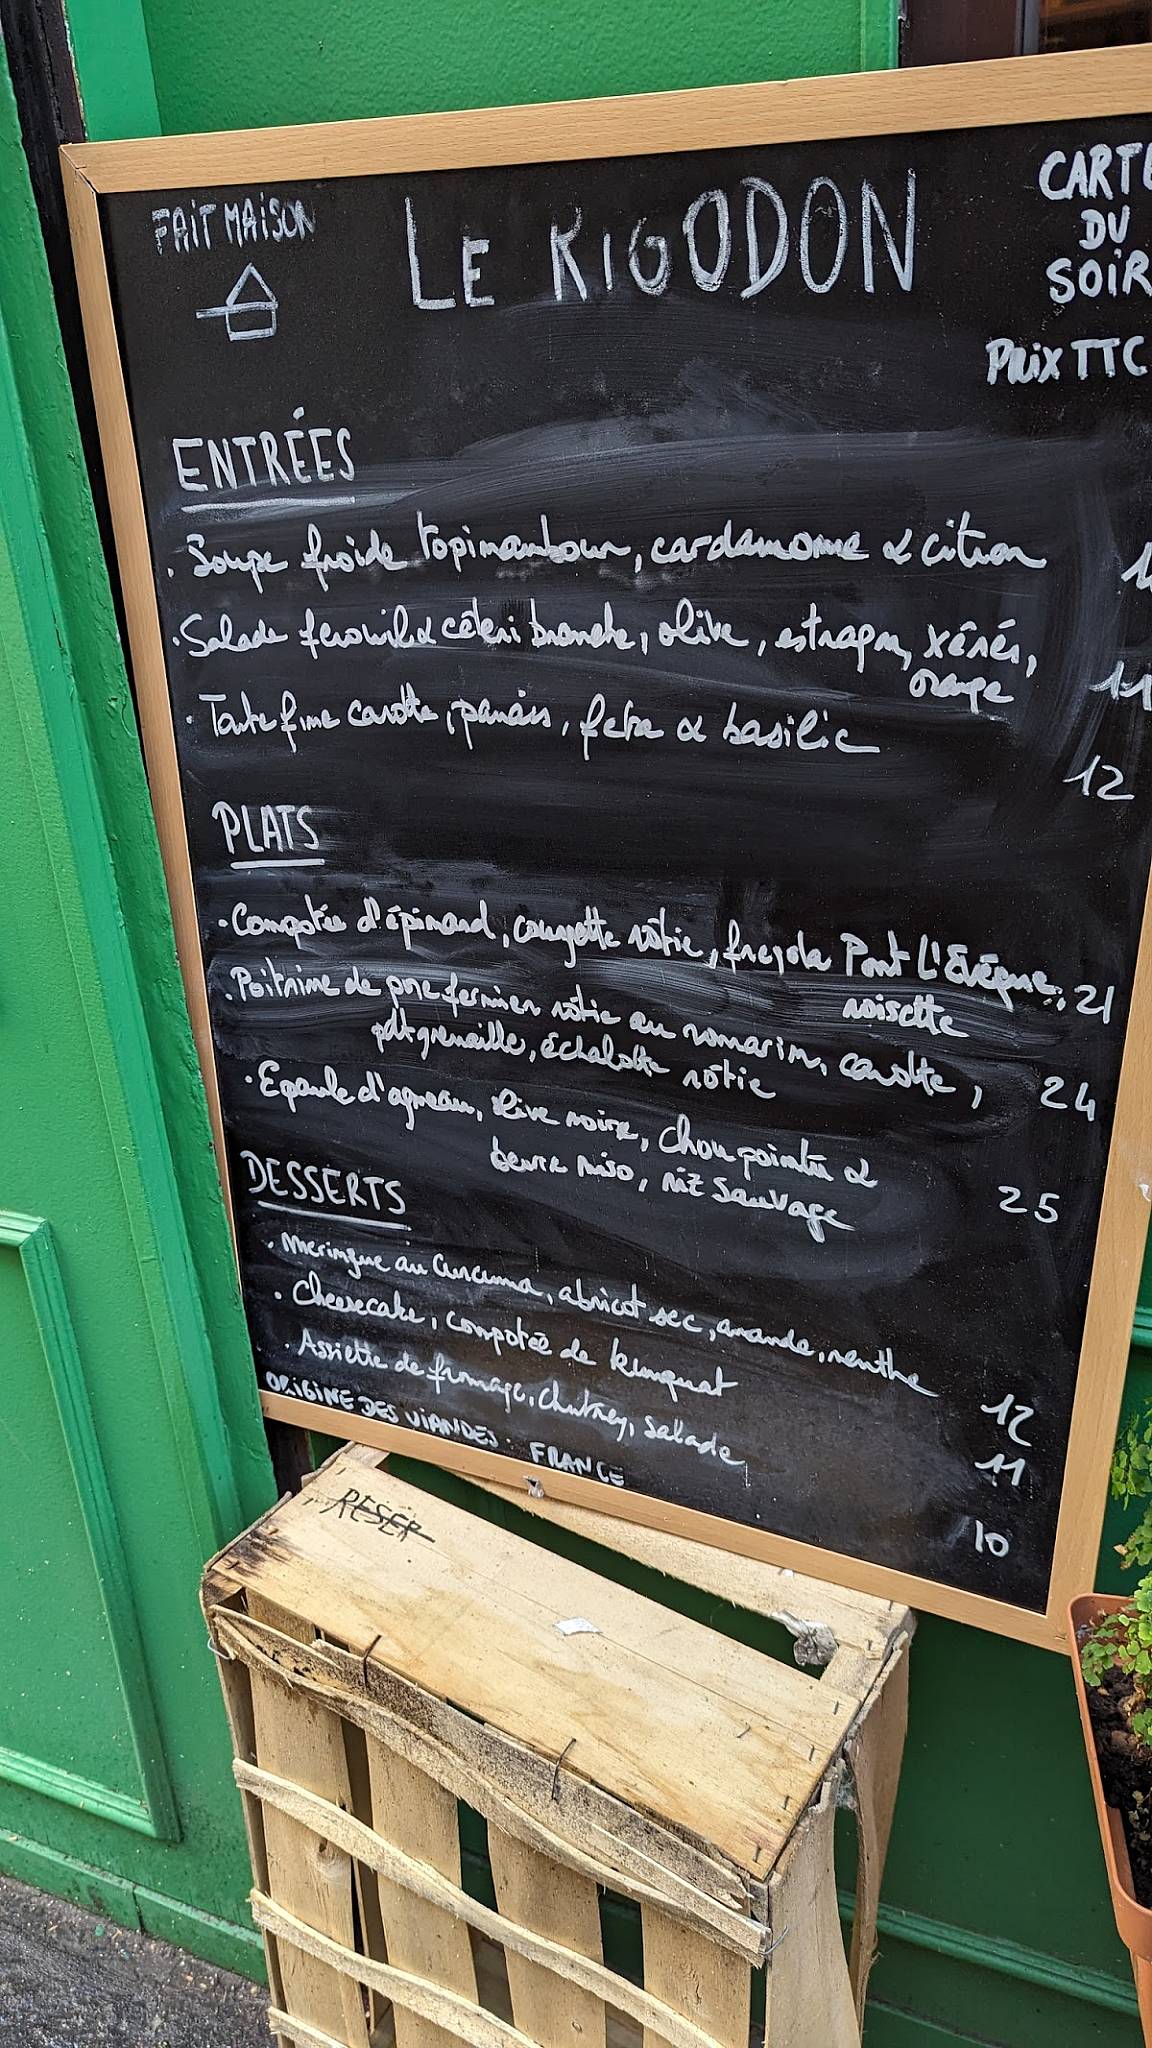 FAIT MAISON
LE RIGODON
CARTE
DU
SOIR
PRIX TTC
ENTRÉES
. Soupe froide topinambour, cardamome & citron
. Salade fenouil & céleri branche, olive, estragon, xérès,
orange 11
. Tarte fine carotte, panais, feta & basilic
12
PLATS
. Compotée d'épinard, courgette rôtie, fregola Pont L'Évêque, 21
noisette
. Poitrine de porc fermier rôtie au romarin, carotte,
pdt grenaille, échalotte rôtie 24
. Epaule d'agneau, olive noire, chou pointu &
beurre miso, riz sauvage 25
DESSERTS
. Meringue au curcuma, abricot sec, amande, menthe
12
. Cheesecake, compotée de kumquat
11
. Assiette de fromage, chutney, salade
10
ORIGINE DES VIANDES . FRANCE
RESER